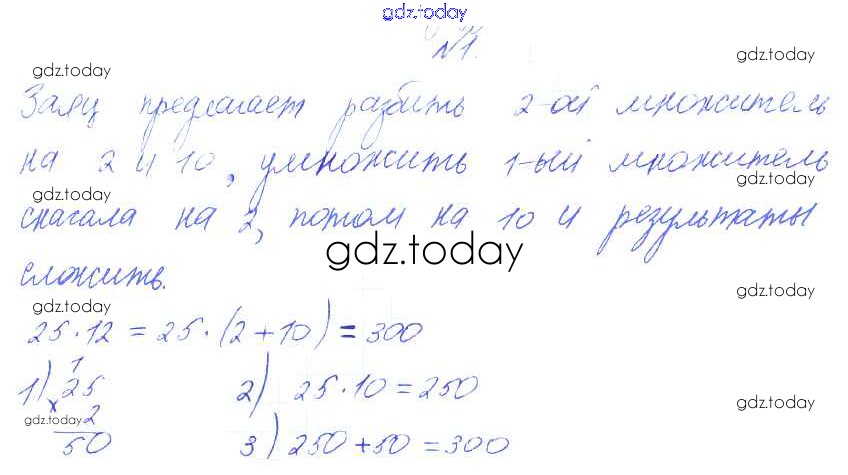 gdz.today
№1.
gdz.today
Заяц предлагает разбить 2-ой множитель
на 2 и 10, умножить 1-ый множитель
gdz.today gdz.today
сначала на 2, потом на 10 и результаты
gdz.today
сложить.
gdz.today gdz.today
25·12 = 25·(2+10) = 300
1) 25 2) 25·10 = 250
× 2
gdz.today gdz.today
50 3) 250+50 = 300